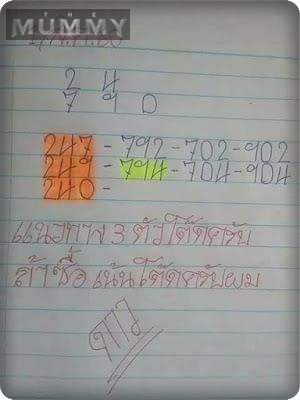 THE
MUMMY
2 4
7 9 0
247 - 792 - 702 - 902
249 - 794 - 704 - 904
240 -
แนวทาง 3 ตัวโต๊ดครับ
ถ้าซื้อ เน้นโต๊ดครับผม